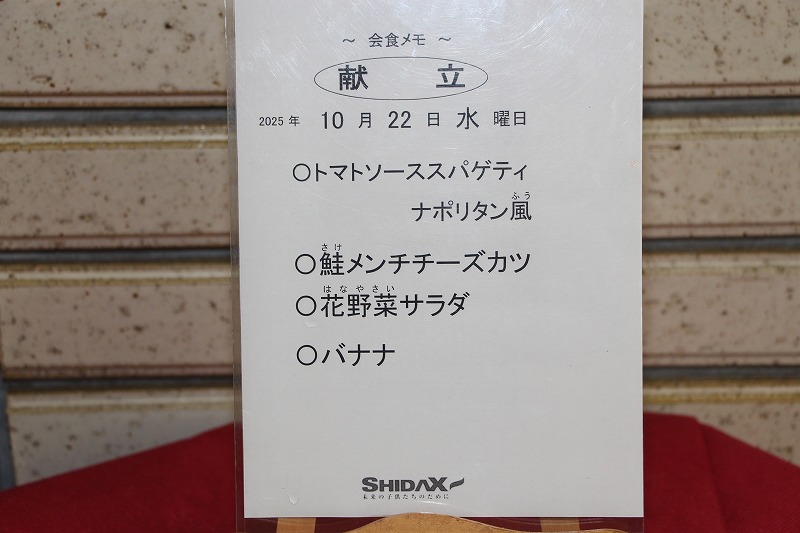 ～ 会食メモ ～
献 立
2025 年 10 月 22 日 水 曜日
○トマトソーススパゲティ
ふう
ナポリタン風
さけ
○鮭メンチチーズカツ
はなやさい
○花野菜サラダ
○バナナ
SHIDAX
未来の子供たちのために